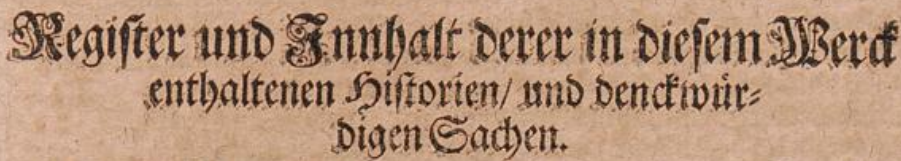 Register und Innhalt derer in diesem Werck
enthaltenen Historien/ und denckwür-
digen Sachen.